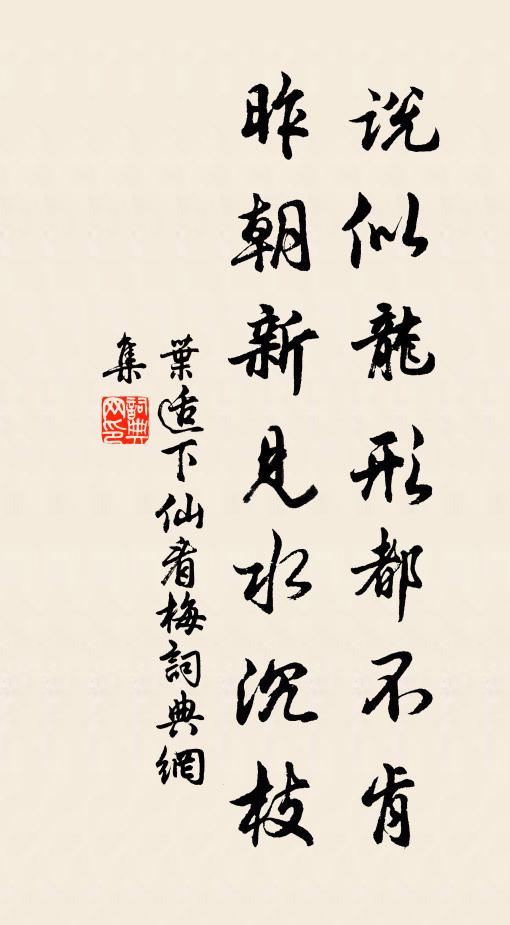 說似龍形都不肯
昨朝新見水沉枝
葉适下仙看梅詞典網
集
詞典網印